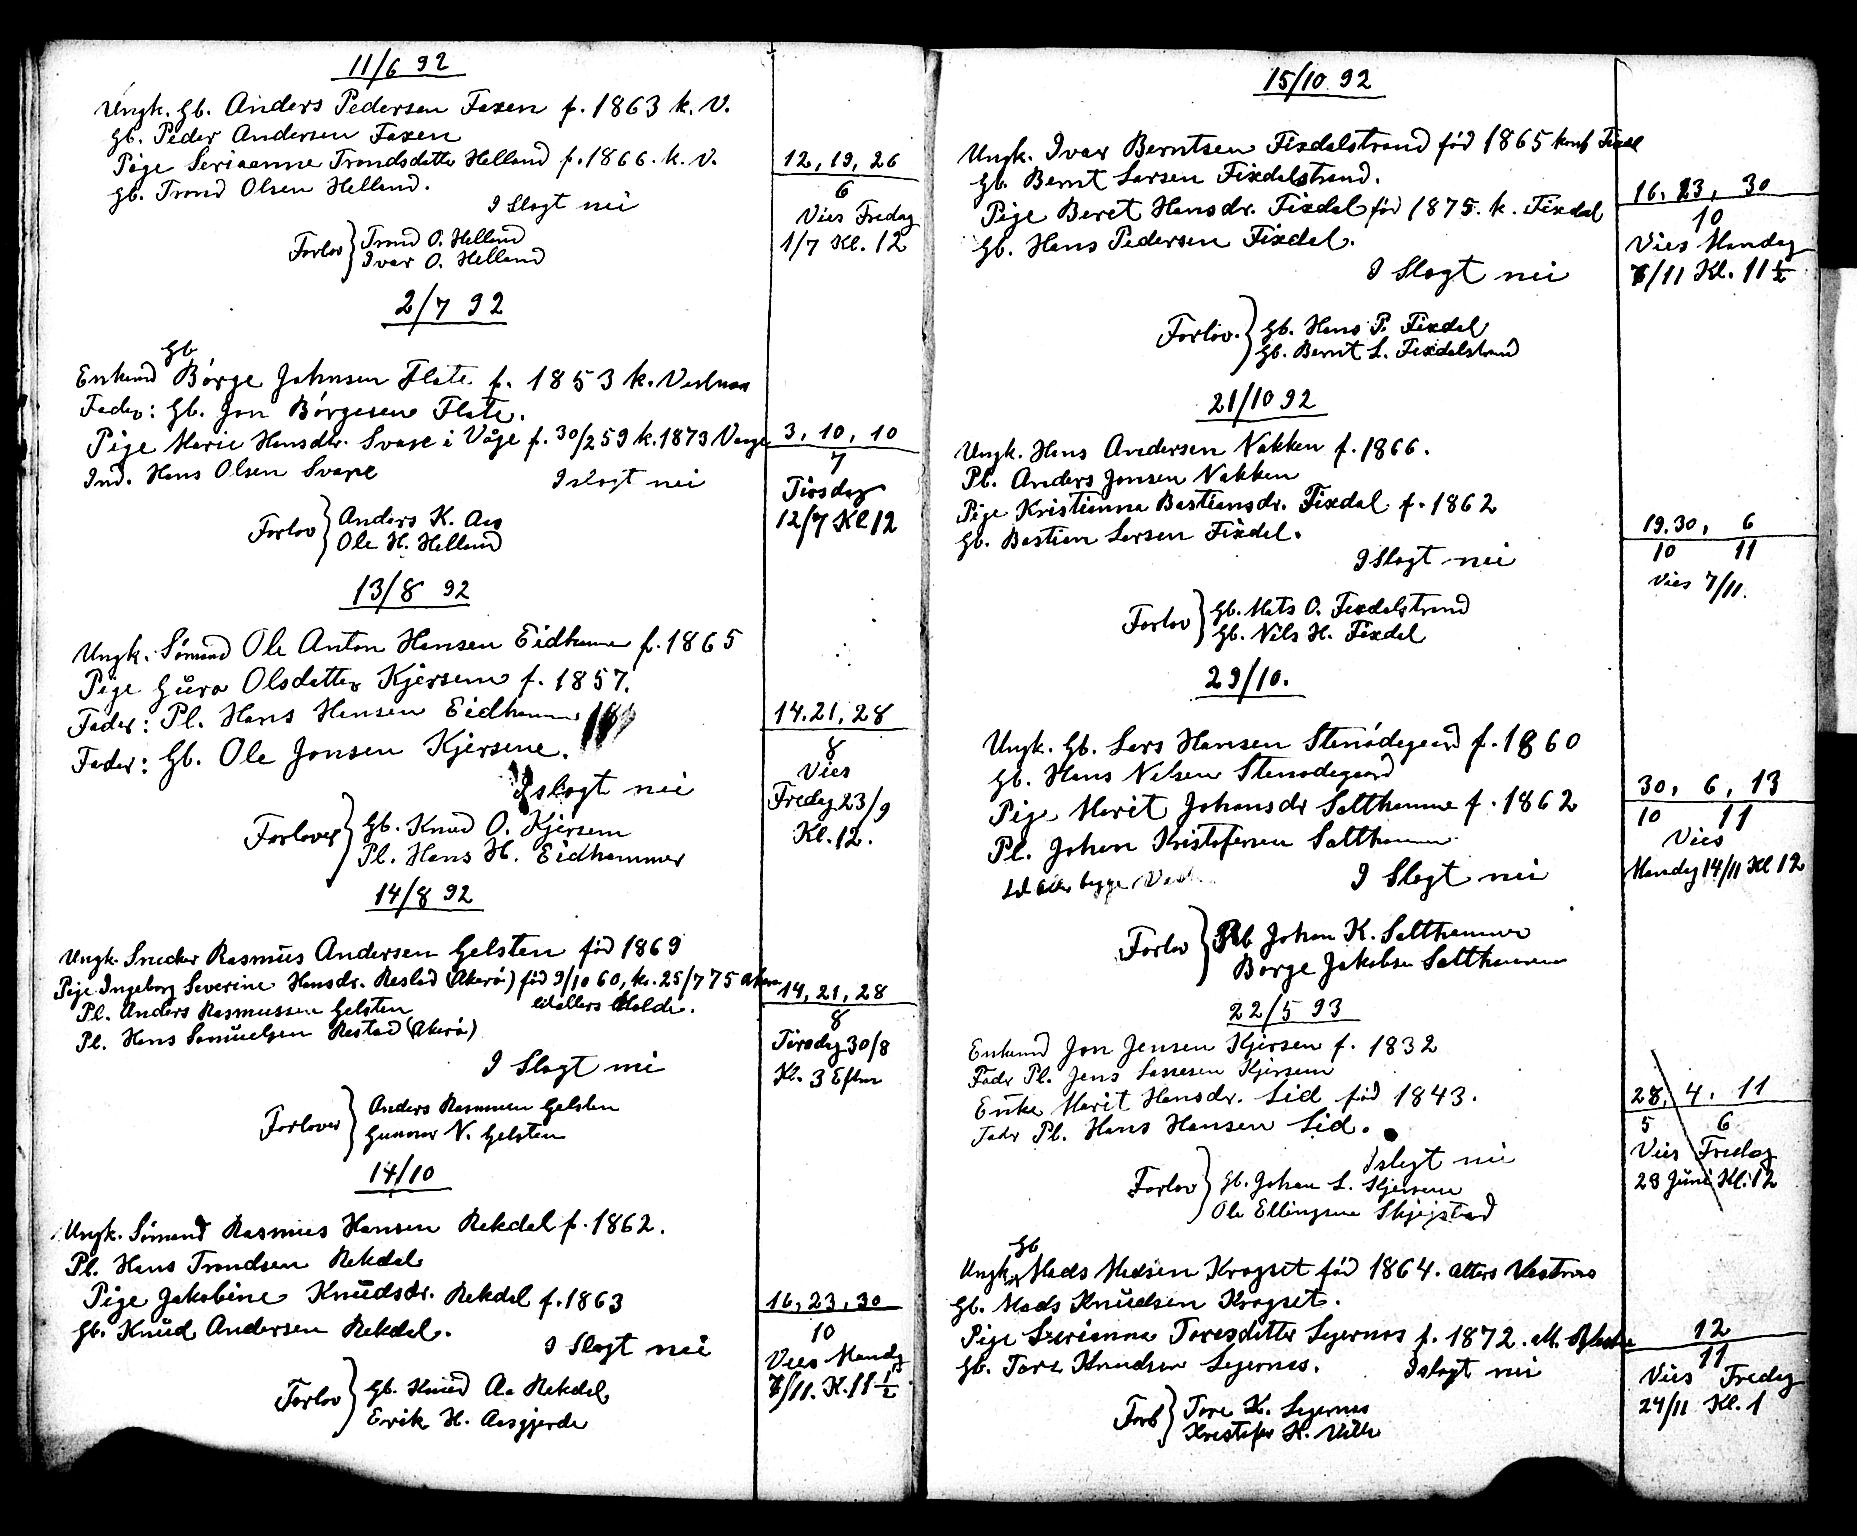 11/6 92
Ungk. Gb. Anders Pedersen Faxen f. 1863 k. V.
Gb. Peder Andersen Faxen
Pige Serianne Trondsdatter Helland f. 1866. k. V.
Gb. Trond Olsen Helland.
I Slagt nei
Forlov } Trond O. Helland
Ivar O. Helland
12, 19, 26
6
Vies Fredag
1/7 Kl. 12
2/7 92
Gb
Enkemd Børge Johnsen Flate f. 1853 k. Vestnes
Fader: Gb. Jon Børgesen Flate.
Pige Marie Hansdtr. Svare i Våge f. 30/2 59 k. 1873
Ind. Hans Olsen Svare
I slagt nei
Forlov } Anders K. Aas
Ole H. Helland
3, 10, 10
7
Tirsdag
12/7 Kl 12
13/8 92
Ungk. Sømand Ole Anton Hansen Eidhammer f. 1865
Pige Guro Olsdatter Kjersem f. 1857.
Fader: Pl. Hans Hansen Eidhammer
Fader: Gb. Ole Jonsen Kjersem.
I slagt nei
Forlover } Gb. Knud O. Kjersem
Pl. Hans H. Eidhammer
14. 21, 28
8
Vies
Fredag 23/9
Kl. 12.
14/8 92
Ungk. Snecker Rasmus Andersen Gelsten fød 1869
Pige Ingeborg Severine Hansdr. Restad (Akerø) fød 9/10 60, k. 25/7 75 Akerø
Pl. Anders Rasmussen Gelsten
Pl. Hans Samuelsen Restad (Akerø)
I Slagt nei
Forlover } Anders Rasmussen Gelsten
Gunnar N. Gelsten
14, 21, 28
8
Tirsdag 30/8
Kl. 3 Efterm
14/10
Ungk. Sømand Rasmus Hansen Rekdal f. 1862.
Pl. Hans Trondsen Rekdal
Pige Jakobine Knudsdr. Rekdal f. 1863
Gb. Knud Andersen Rekdal.
I Slagt nei
Forlov } Gb. Knud Aa Rekdal,
Erik H. Aasgjerde
16, 23, 30
10
Vies Mandg
7/11. K. 11 1/2
15/10 92
Ungk. Ivar Berntsen Fixdalstrand fød 1865 konf Fixdal
Gb. Bernt Larsen Fixdalstrand.
Pige Beret Hansdr. Fixdal fød 1875. k. Fixdal
Gb. Hans Pedersen Fixdal.
I Slagt nei
Forlov. } Gb. Hans P. Fixdal
Gb. Bernt L. Fixdalstrand
16. 23, 30
10
Vies Mandag
7/11 Kl. 11 1/2
21/10 92
Ungk. Hans Andersen Nakken f. 1866.
Pl. Anders Jonsen Nakken
Pige Kristianna Bastiansdr. Fixdal f. 1862
Gb. Bastian Larsen Fixdal.
I Slagt nei
Forlov } Gb. Mats O. Fixdalstrand
Gb. Nils H. Fixdal
19. 30, 6
10 11
Vies 7/11.
29/10.
Ungk. Gb. Lars Hansen Stenødegaard f. 1860
Gb. Hans Nilsen Stenødegaard
Pige Marit Johansdr Salthammer f. 1862
Pl. Johan Kristofersen Salthammer
I Slagt nei
Forlov } Johan K. Salthammer
Børge Jakobsen Salthammer
30, 6, 13
10 11
Vies
Mandag 14/11 Kl 12
22/5 93
Enkemd Jon Jensen Kjersem f. 1832
Fader Pl. Jens Lassesen Kjersem
Enke Marit Hansdr. Lid fød 1843.
Fader Pl. Hans Hansen Lid.
I slagt nei
Forlov } Gb. Johan L. Kjersem
Ole Ellingsen Skjegstad
28, 4, 11
5 6
Vies Fredag
23 Juni Kl. 12
Gb
Ungk. Mads Madsen Kragset fød 1864. Vestnes
Gb. Mads Knudsen Kragset.
Pige Serianna Toresdatter Legernes f. 1872.
Gb. Tore Knudsen Legernes.
I slagt nei
Forl } Tore K. Legernes
Kristofer K.
12
11
Vies Fredag
24/11 Kl. 1